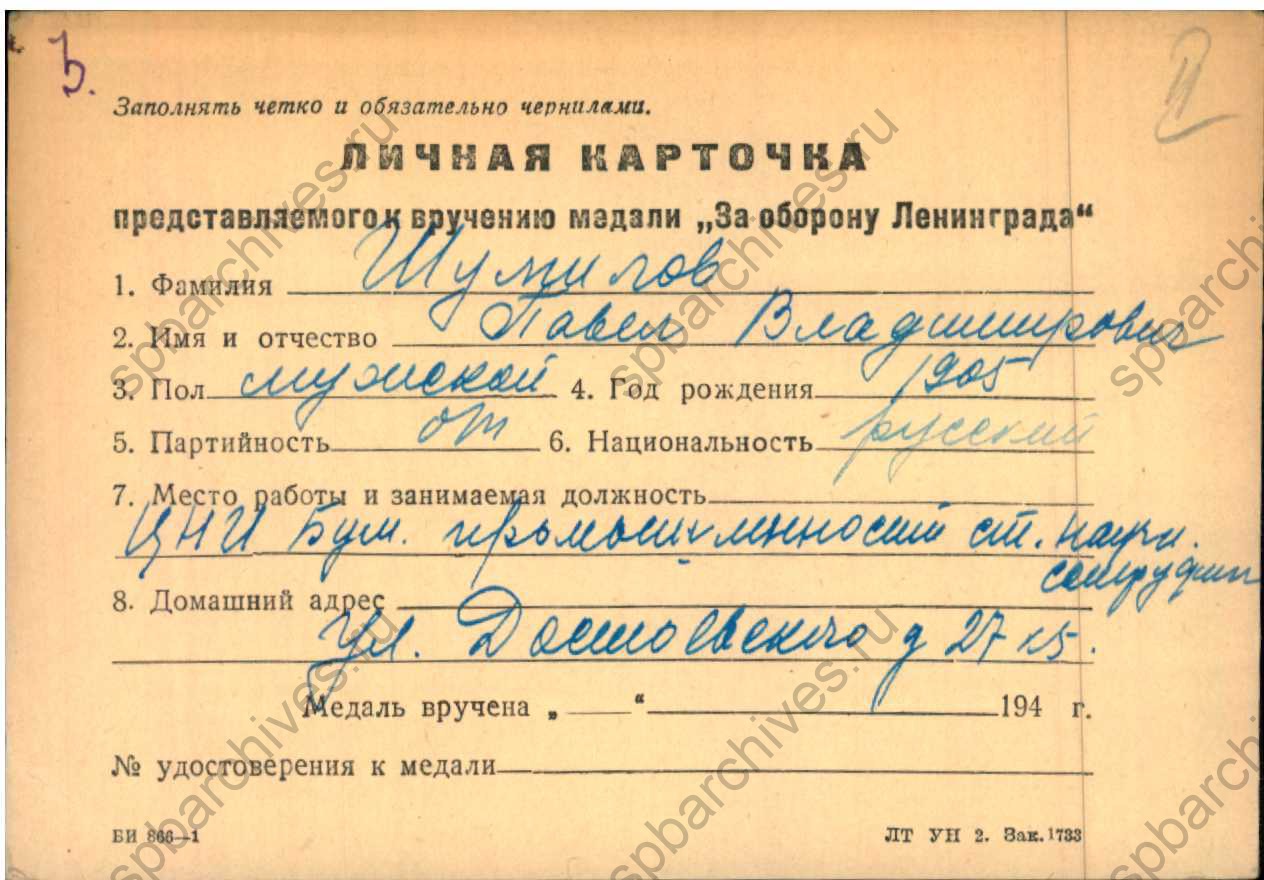 Ъ.
Заполнять четко и обязательно чернилами.
ЛИЧНАЯ КАРТОЧКА
представляемого к вручению медали „За оборону Ленинграда“
1. Фамилия Шумилов
2. Имя и отчество Павел Владимирович
3. Пол мужской 4. Год рождения 1905
5. Партийность 6. Национальность русский
7. Место работы и занимаемая должность
ЦНИ Бум. промышленности ст. научн.
сотрудник
8. Домашний адрес
Ул. Достоевского д 27 к 5.
Медаль вручена „ “ 194 г.
№ удостоверения к медали
БИ 866—1 ЛТ УН 2. Зак. 1733
spbarchives.ru